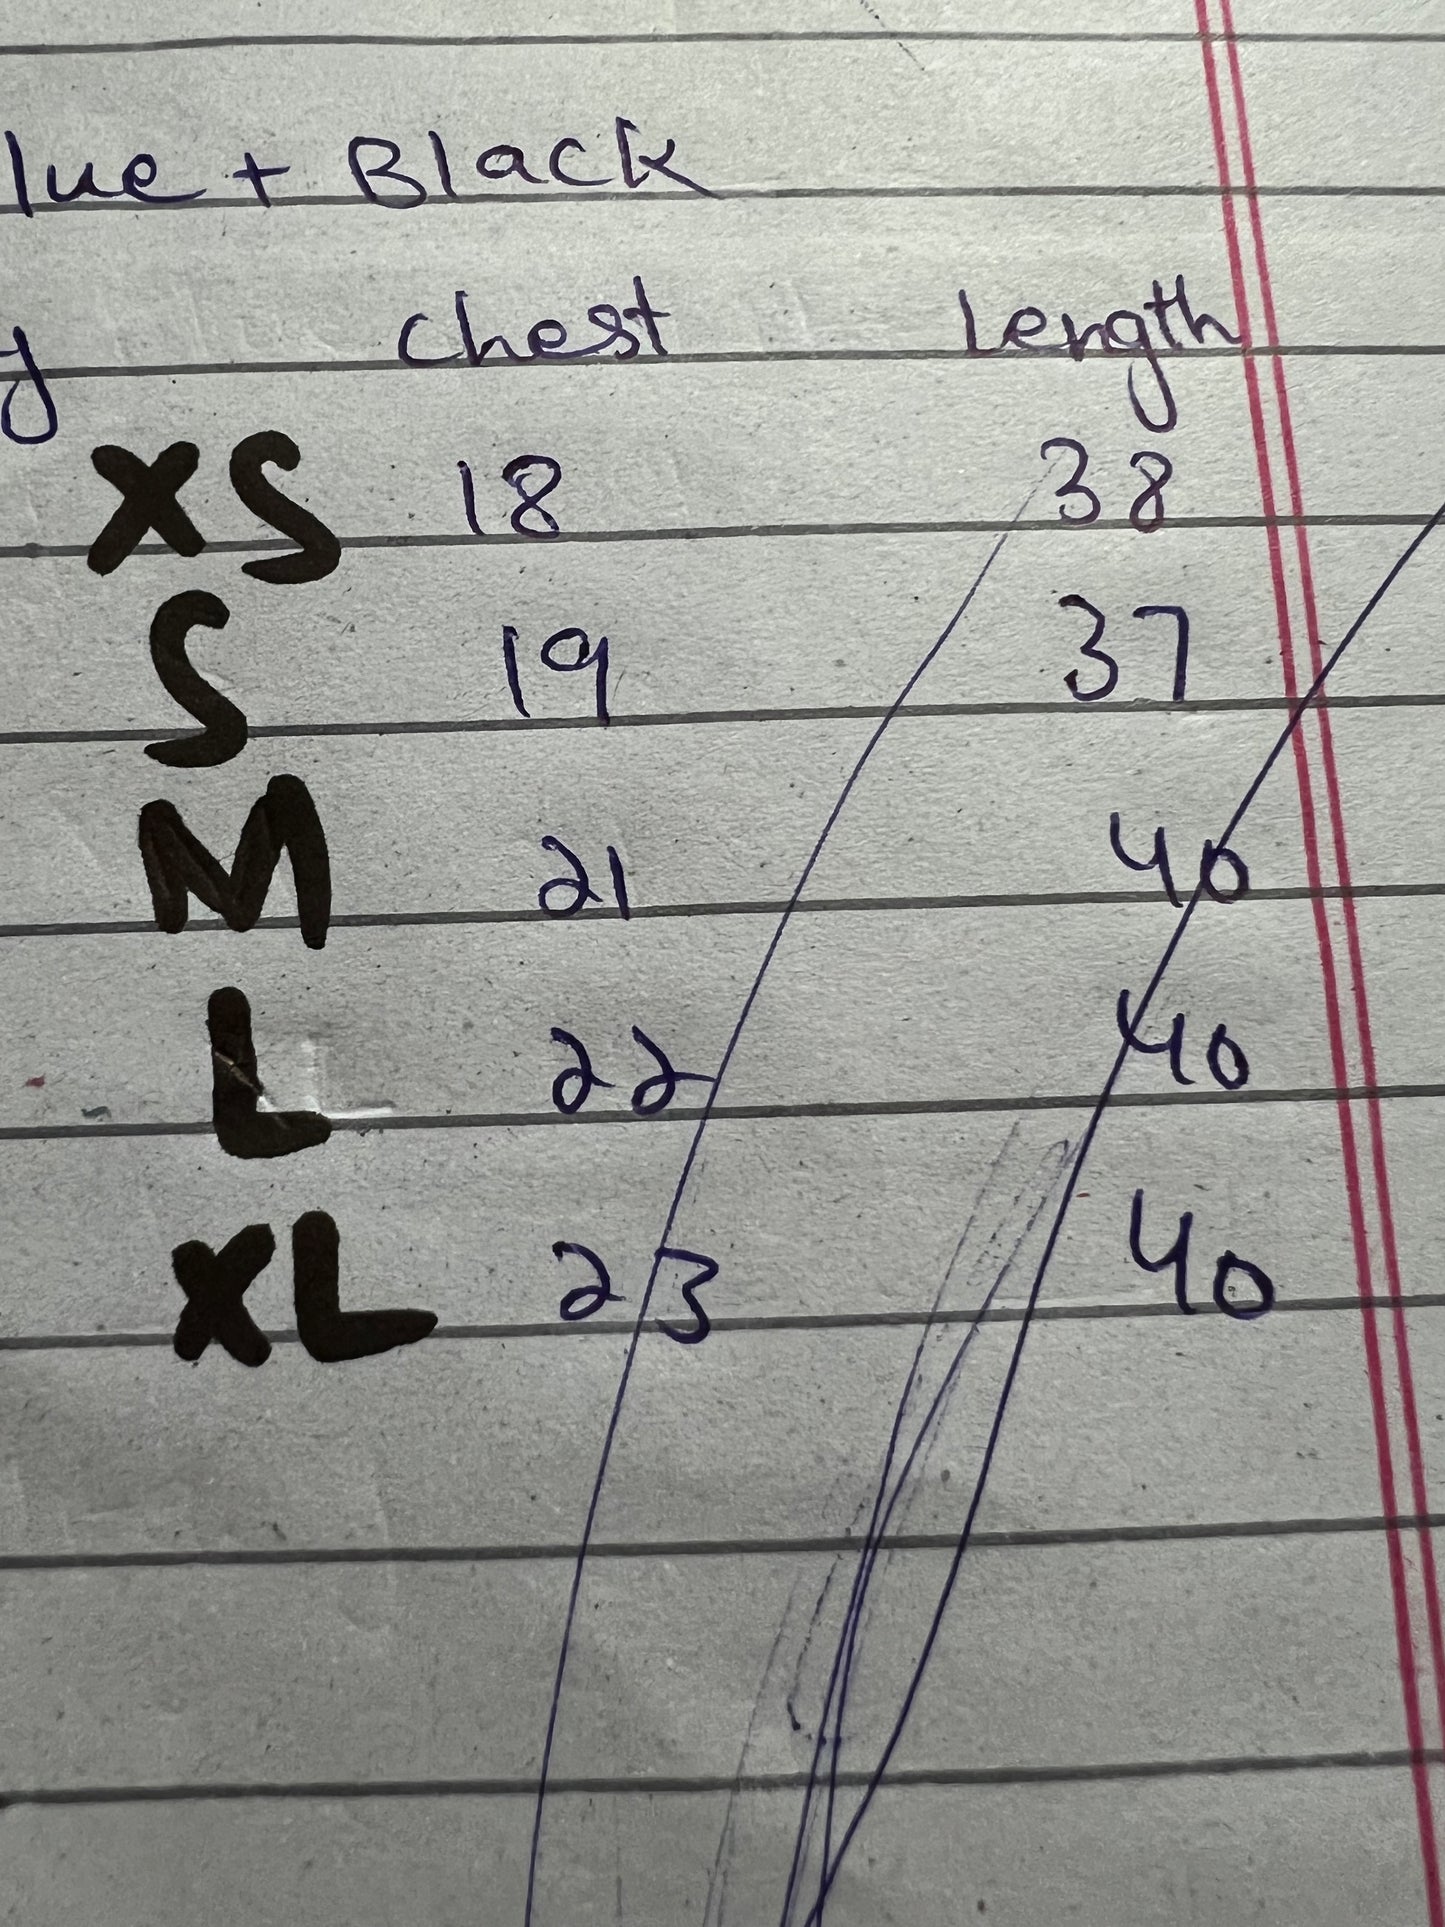 lue + Black
y Chest Length
XS 18 38
S 19 37
M 21 40
L 22 40
XL 23 40